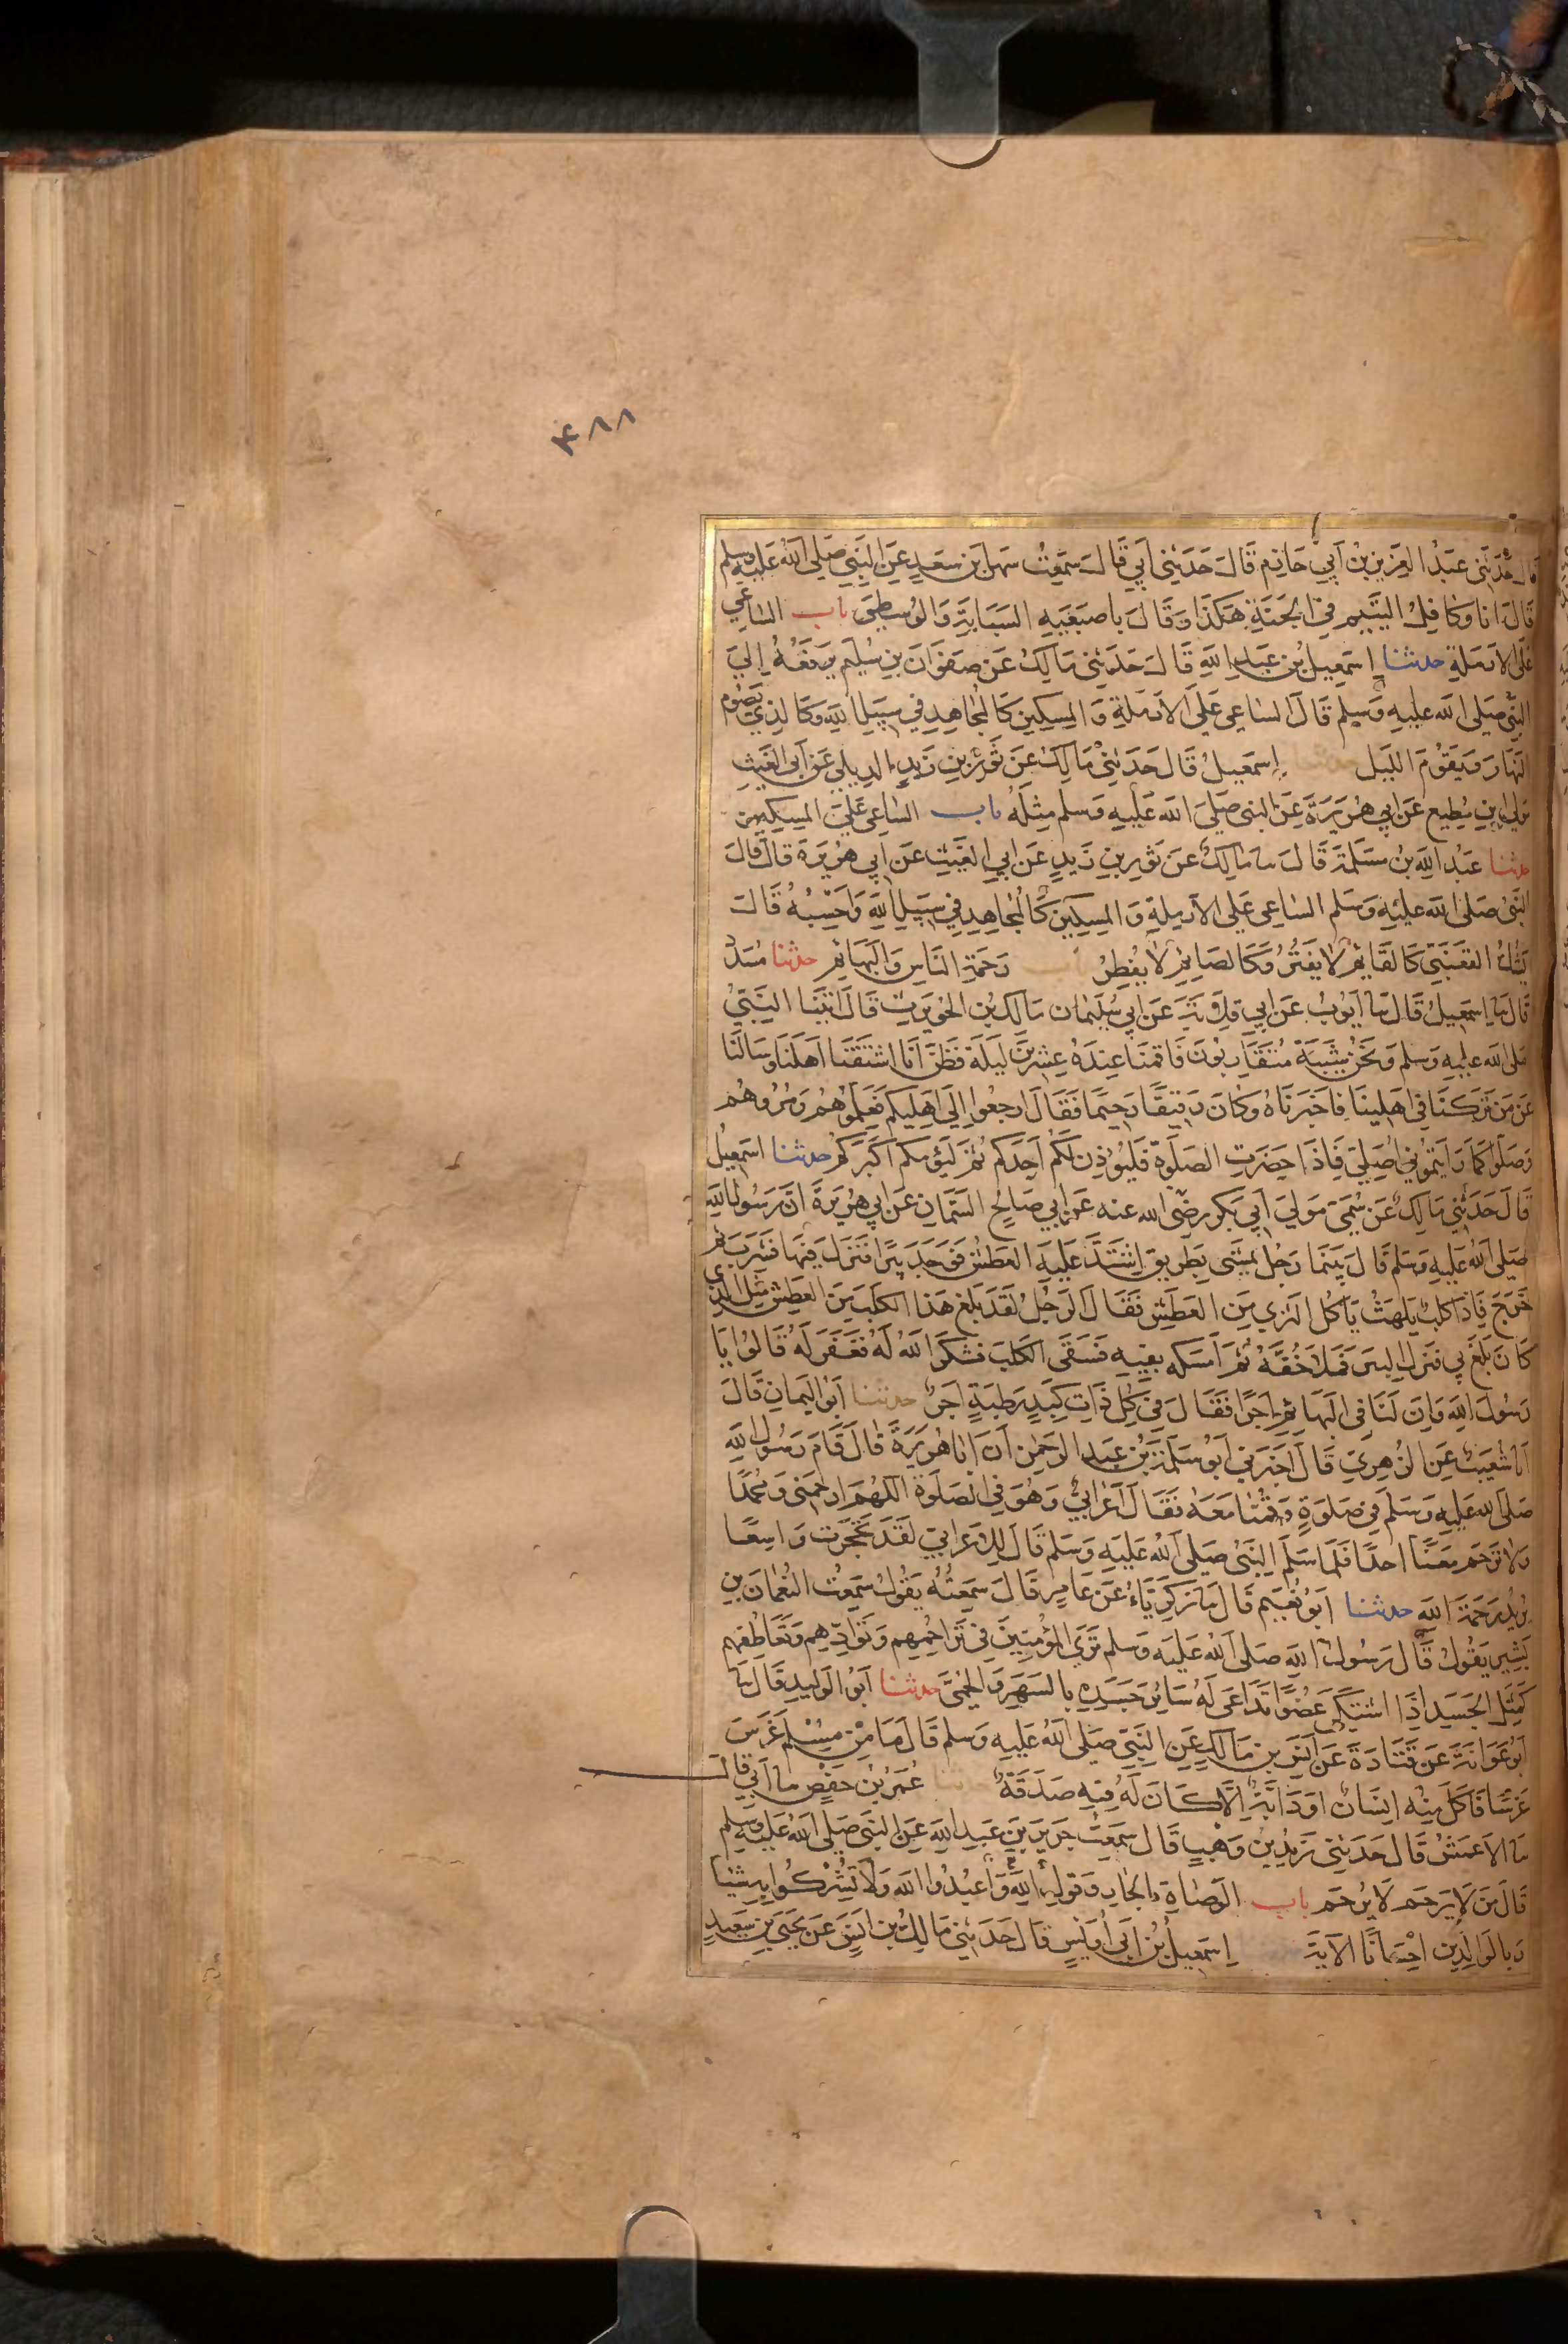 ۴۸۸
قال حدثنى عبد العزيز بن ابي حازم قال حدثني ابي قال سمعت سهل بن سعد عن النبي صلى الله عليه وسلم
قال انا وكافل اليتيم في الجنة هكذا وقال باصبعيه السبابة والوسطى باب الساعي
على الارملة حدثنا اسمعيل بن عبد الله قال حدثني مالك عن صفوان بن سليم يرفعه الي
النبي صلى الله عليه وسلم قال الساعي على الارملة والمسكين كالمجاهد في سبيل الله وكالذي يصوم
النهار ويقوم الليل حدثنا اسمعيل قال حدثني مالك عن ثور بن زيد الديلي عن ابي الغيث
مولى ابن مطيع عن ابي هريرة عن النبي صلى الله عليه وسلم مثله باب الساعي على المسكين
حدثنا عبد الله بن مسلمة قال سا مالك عن ثور بن زيد عن ابي الغيث عن ابي هريرة قال قال
النبي صلى الله عليه وسلم الساعي على الارملة والمسكين كالمجاهد في سبيل الله واحسبه قال
يشك القعنبي كالقائم لا يفتر وكالصائم لا يفطر باب رحمة الناس والبهائم حدثنا مسدد
قال سا اسمعيل قال سا ايوب عن ابي قلابة عن ابي سليمان مالك بن الحويرث قال اتينا النبي
صلى الله عليه وسلم ونحن شببة متقاربون فاقمنا عنده عشرين ليلة فظن انا اشتقنا اهلنا وسالنا
عن من تركنا في اهلينا فاخبرناه وكان رفيقا رحيما فقال ارجعوا الى اهليكم فعلموهم ومروهم
وصلوا كما رايتموني اصلي فاذا حضرت الصلوة فليؤذن لكم احدكم ثم ليؤمكم اكبركم حدثنا اسمعيل
قال حدثني مالك عن سمي مولي ابي بكر رضي الله عنه عن ابي صالح السمان عن ابي هريرة ان رسول الله
صلى الله عليه وسلم قال بينما رجل يمشي بطريق اشتد عليه العطش فوجد بيرا فنزل فيها فشرب ثم
خرج فاذا كلب يلهث ياكل الثري من العطش فقال الرجل لقد بلغ هذا الكلب من العطش مثل الذي
كان بلغ بي فنزل البير فملا خفه ثم امسكه بفيه فسقى الكلب فشكر الله له فغفر له قالوا يا
رسول الله وان لنا في البهائم اجرا فقال في كل ذات كبد رطبة اجر حدثنا ابو اليمان قال
انا شعيب عن الزهري قال اخبرني ابو سلمة بن عبد الرحمن ان ابا هريرة قال قام رسول الله
صلى الله عليه وسلم في صلوة وقمنا معه فقال اعرابي وهو في الصلوة اللهم ارحمني ومحمدا
ولا ترحم معنا احدا فلما سلم النبي صلى الله عليه وسلم قال للاعرابي لقد تحجرت واسعا
يريد رحمة الله حدثنا ابو نعيم قال سا زكرياء عن عامر قال سمعته يقول سمعت النعمان بن
بشير يقول قال رسول الله صلى الله عليه وسلم تري المؤمنين في تراحمهم وتوادهم وتعاطفهم
كمثل الجسد اذا اشتكى عضوا تداعى له سائر جسده بالسهر والحمى حدثنا ابو الوليد قال سا
ابو عوانة عن قتادة عن انس بن مالك عن النبي صلى الله عليه وسلم قال ما من مسلم غرس
غرسا فاكل منه انسان او دابة الا كان له فيه صدقة حدثنا عمر بن حفص سا ابي قال
سا الاعمش قال حدثني زيد بن وهب قال سمعت جرير بن عبد الله عن النبي صلى الله عليه وسلم
قال من لا يرحم لا يرحم باب الوصاة بالجار وقوله الله واعبدوا الله ولا تشركوا به شيئا
وبالوالدين احسانا الاية اسمعيل بن ابي اويس قال حدثني مالك بن انس عن يحيى بن سعيد